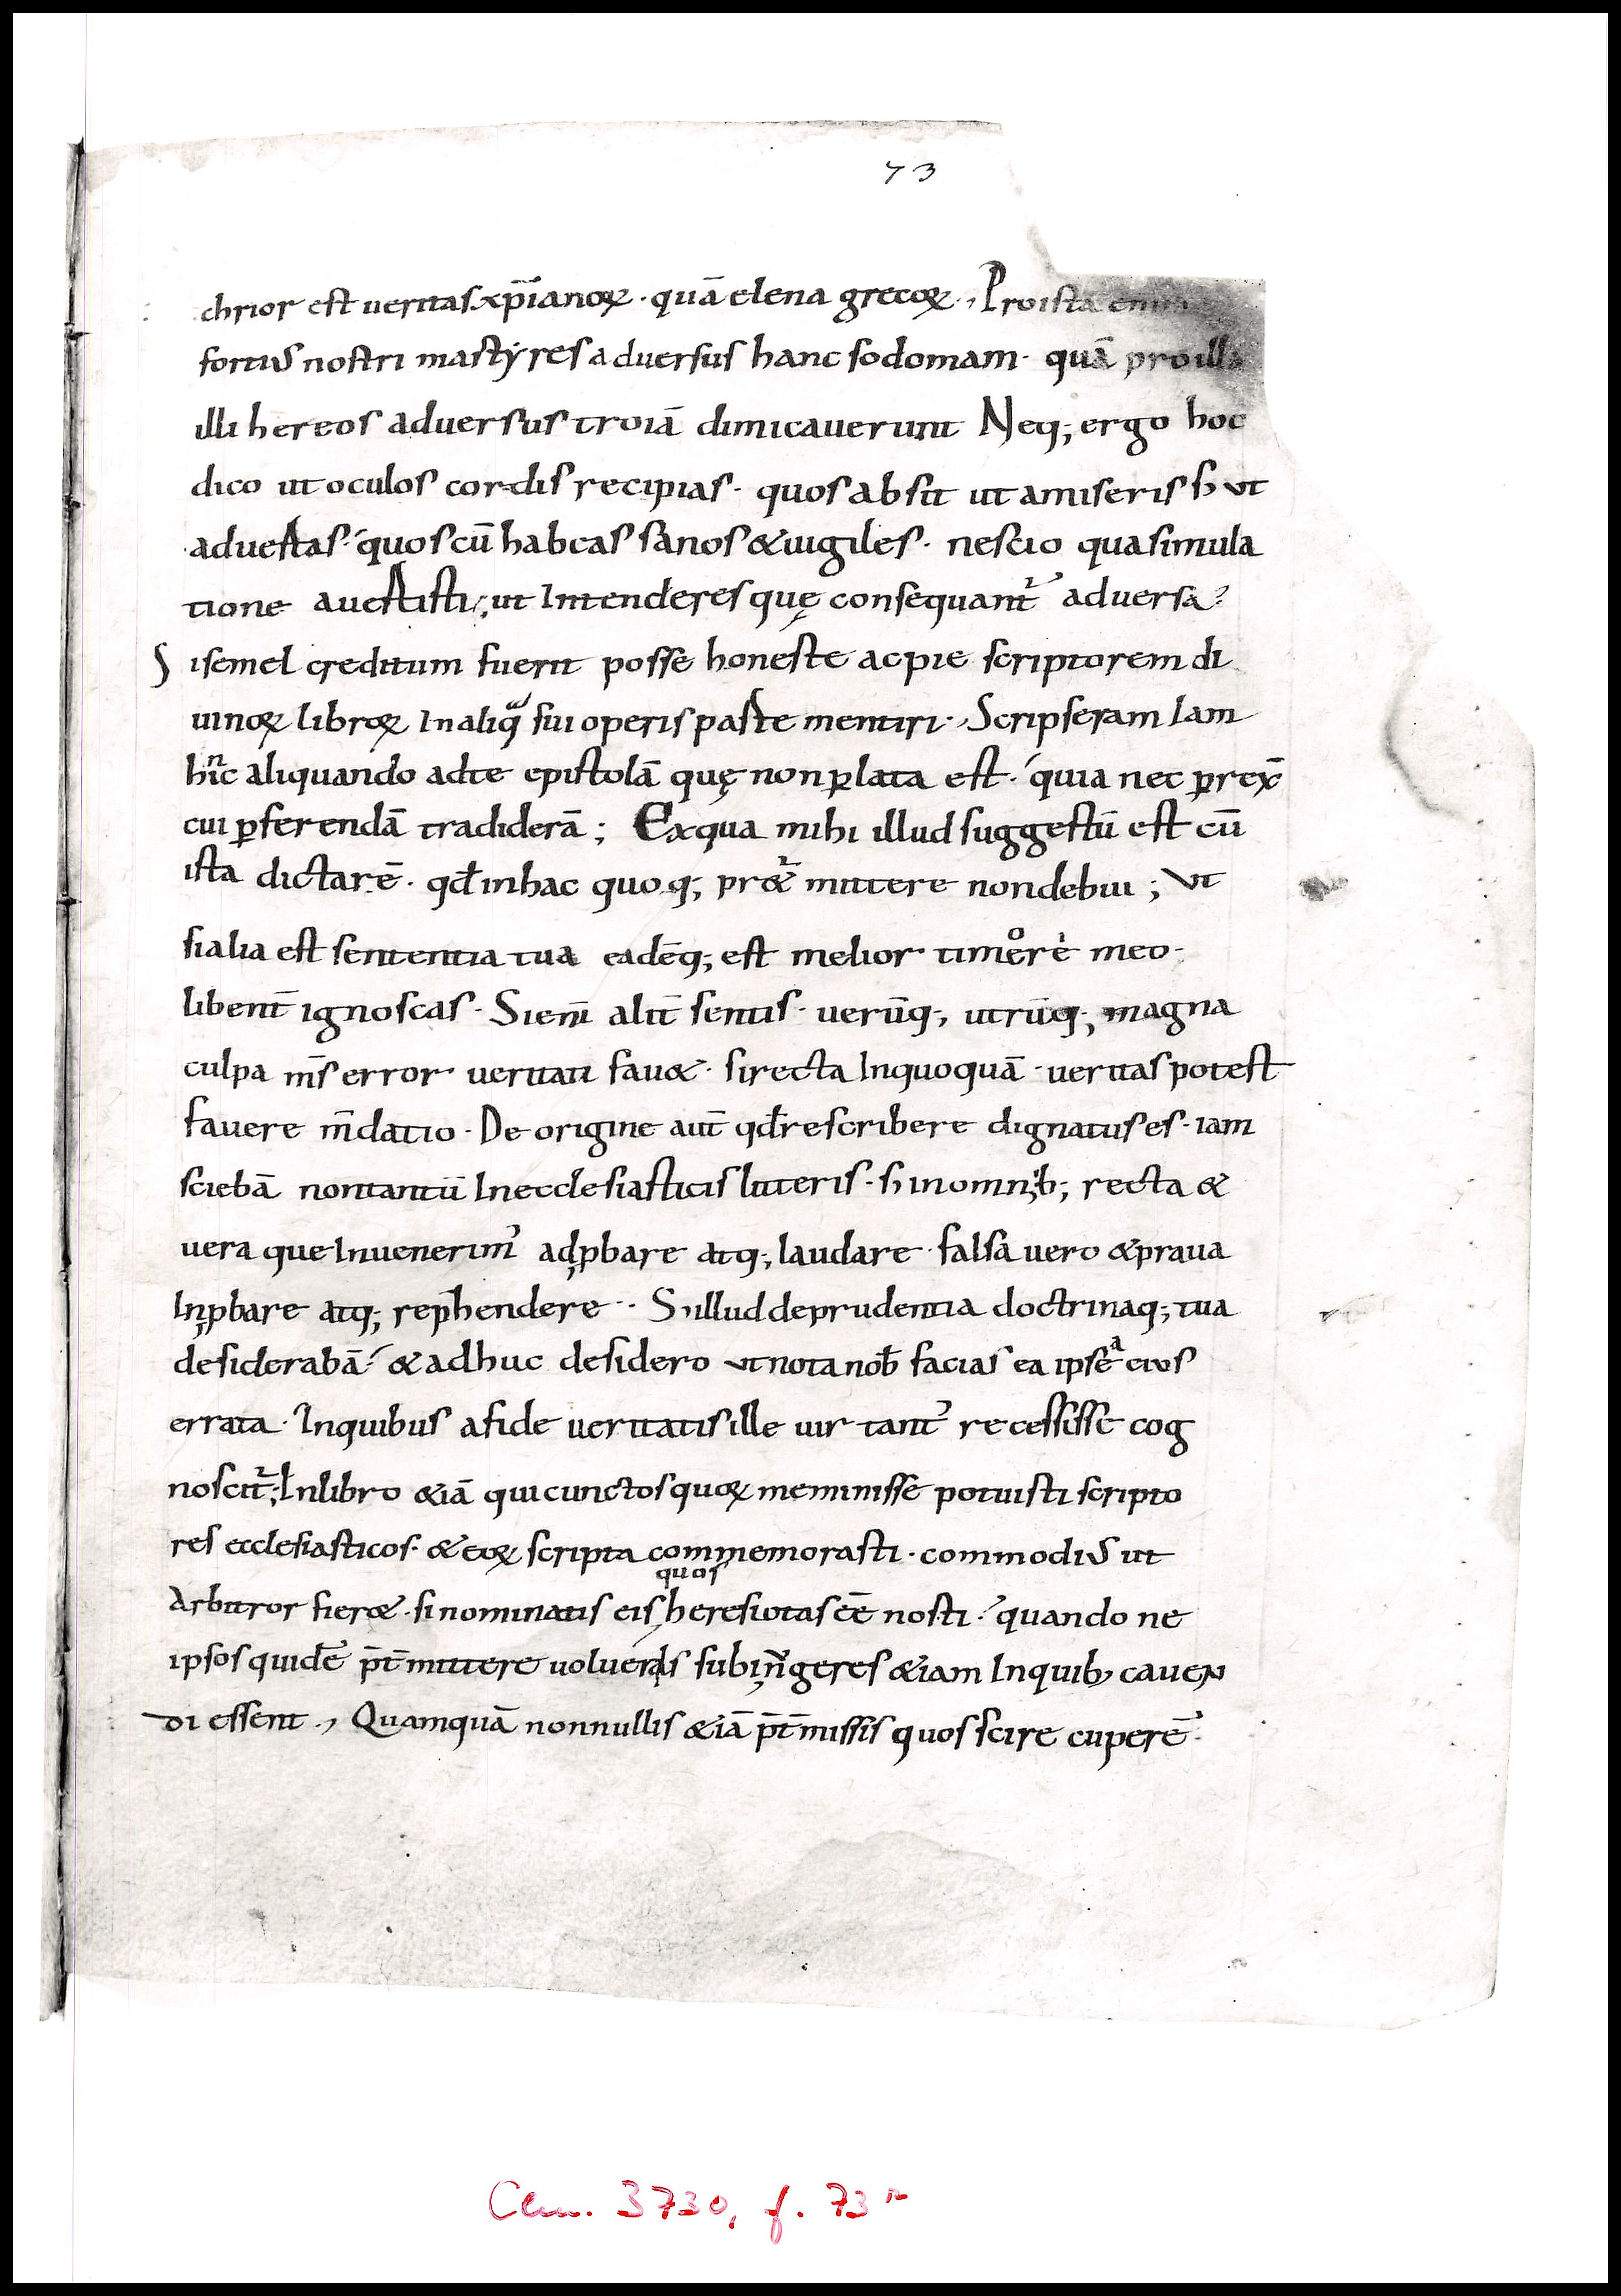 73
chrior est veritas xp̅ianoꝝ · quā elena grecoꝝ ., Pro ista enim
fortiuſ nostri martyres aduersus hanc sodomam · quā pro illa
illi hereos aduersus troiā dimicauerunt Neq; ergo hoc
dico ut oculos cordis recipias · quos absit ut amiseris sꝫ ut
aduertas · quos cū habeas sanos & uigiles · nescio qua simula
tione auertisti; ut Intenderes quę consequant᷑ aduersa?
S isemel creditum fuerit posse honeste ac pie scriptorem di
uinoꝝ libroꝝ In aliqͣ sui operis parte mentiri ·, Scripseram Iam
hī́c aliquando ad te epistolā quę non ꝑlata est · quia nec ꝑrex̄
cui ꝑferendā tradiderā ; Ex qua mihi illud suggestū est cū
ista dictarē · qđ in hac quoq; pr&᷑ mittere non debui ; Ut
si alia est sententia tua eadēq; est melior timoͦre meo ·
libent̄ ignoscas · Si eni̅ alit̄ sentis · verūq; utrūq; magna
culpa m̄s error veritati fau& · si recta In quoquā · veritas potest
fauere m̄datio · De origine aut̄ qđ rescribere dignatus es · iam
sciebā non tantū In ecclesiasticis litteris · sꝫ in omnib; recta &
uera que Inuenerim᾽ adꝓbare atq; laudare · falsa vero & praua
Inꝓbare atq; rep̄hendere · · Sꝫ illud de prudentia doctrinaq; tua
desiderabā · & adhuc desidero ut nota nob̄ facias ea ipseͣ eius
errata · In quibus a fide ueritatis ille uir tant᾽ recessisse cog
noscit᷑; In libro &iā qui cunctos quoꝝ meminisse potuisti scripto
res ecclesiasticos · & eoꝝ scripta commemorasti · commodiuſ ut
quos
Arbitror fier& · si nominatis eis heresiotas eē nosti · quando ne
ipsos quidē p̄t̄mittere uolueris subin̄geres &iam In quib, cauen
di essent ., Quamquā nonnullis &iā p̄t̄missis quos scire cuperē ·
Clm. 3730, f. 73r